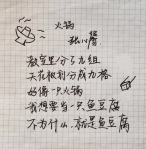 火锅
张小馨
教室里分了九组
天花板划分成九格
好像一只火锅
我想要当一只鱼豆腐
不为什么，就是鱼豆腐